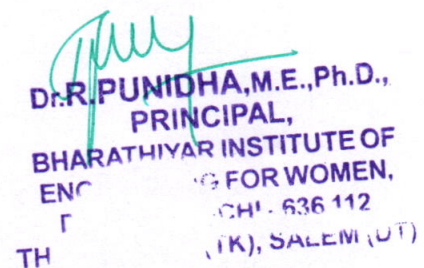 Dr.R.PUNIDHA,M.E.,Ph.D.,
PRINCIPAL,
BHARATHIYAR INSTITUTE OF
FOR WOMEN,
636 112
(TK), SALEM (DT)